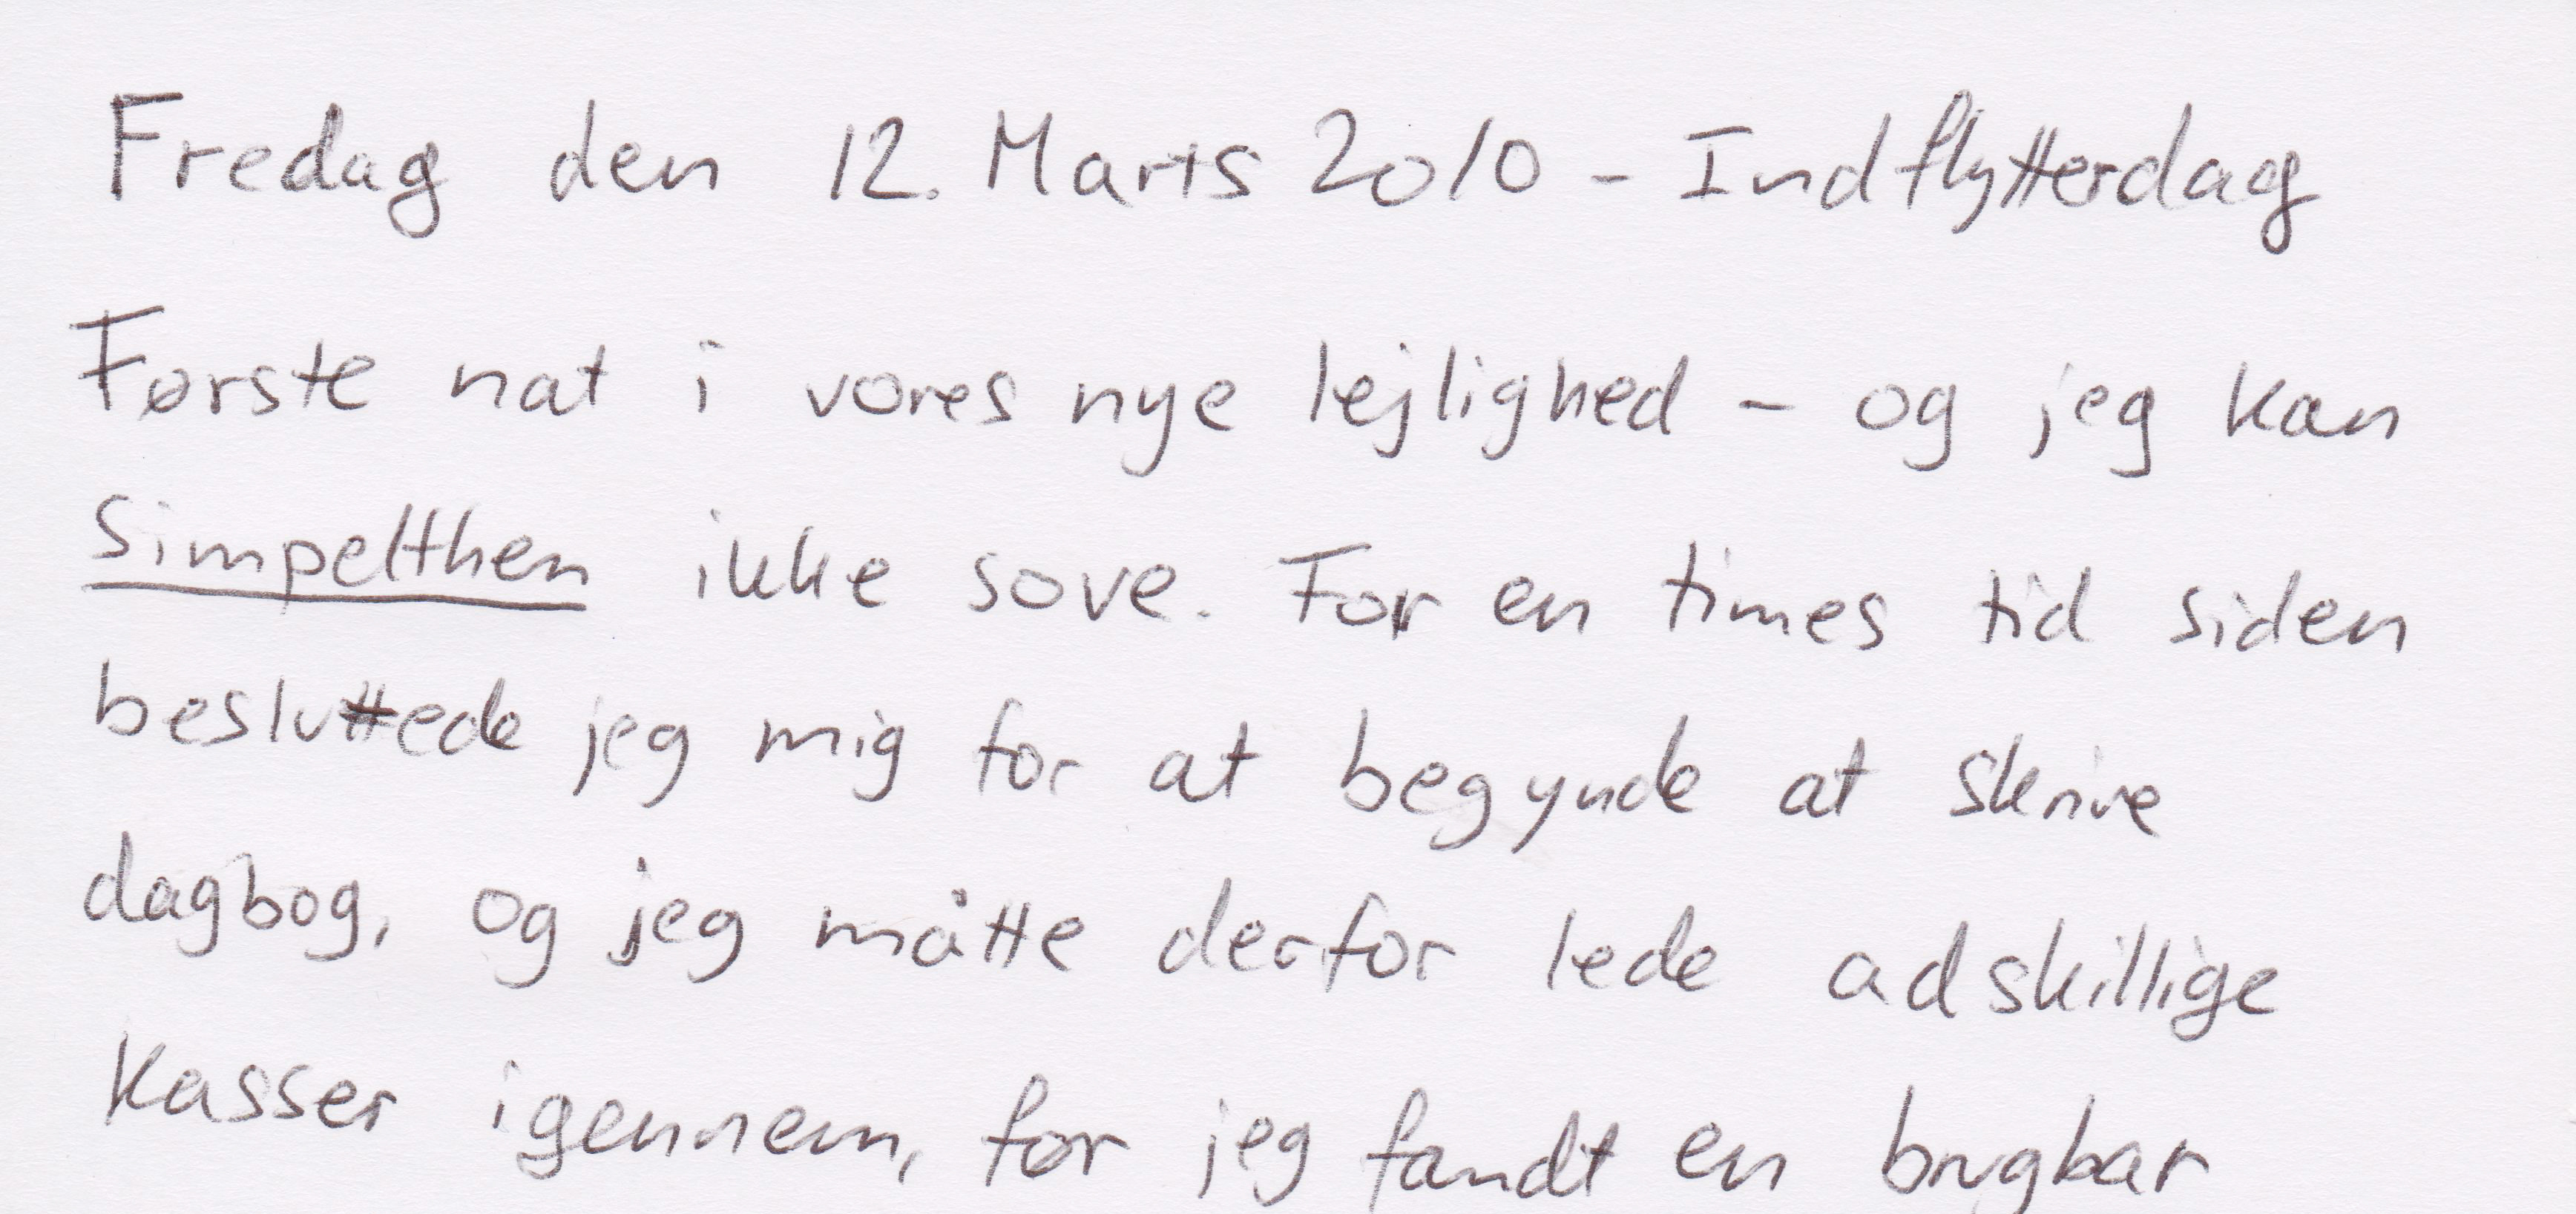 Fredag den 12. Marts 2010 - Indflytterdag
Første nat i vores nye lejlighed - og jeg kan
simpelthen ikke sove. For en times tid siden
besluttede jeg mig for at begynde at skrive
dagbog, og jeg måtte derfor lede adskillige
kasser igennem, før jeg fandt en brugbar